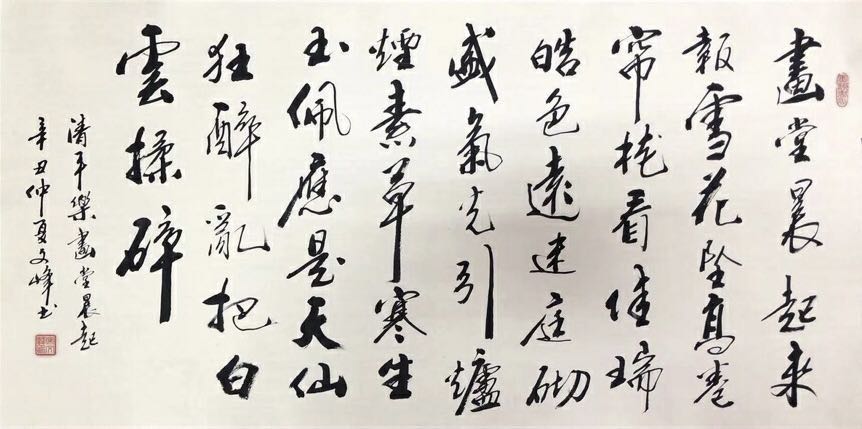 畫堂晨起来
報雪花坠高卷
帘栊看佳瑞
皓色遠迷庭砌
盛氣光引爐
煙素草寒生
玉佩應是天仙
狂醉亂把白
雲揉碎
清平樂畫堂晨起
辛丑仲夏文峰书